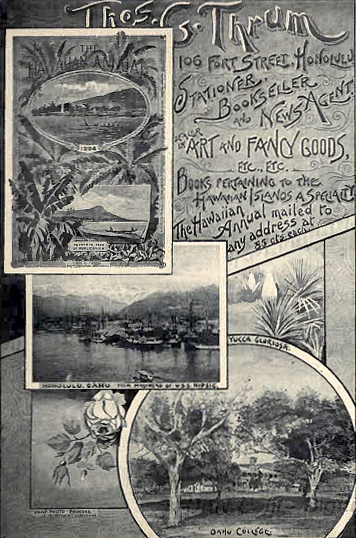 Thos. G. Thrum
106 FORT STREET, HONOLULU
STATIONER,
BOOKSELLER
AND NEWS AGENT.
DEALER IN ART AND FANCY GOODS,
ETC., ETC.
BOOKS PERTAINING TO THE
HAWAIIAN ISLANDS A SPECIALTY
The Hawaiian
Annual mailed to
any address at
85 cts. each.
THE
HAWAIIAN ANNUAL
YUCCA GLORIOSA.
HONOLULU, OAHU FROM MASTHEAD OF U.S.S. NIPSIC.
OAHU COLLEGE.